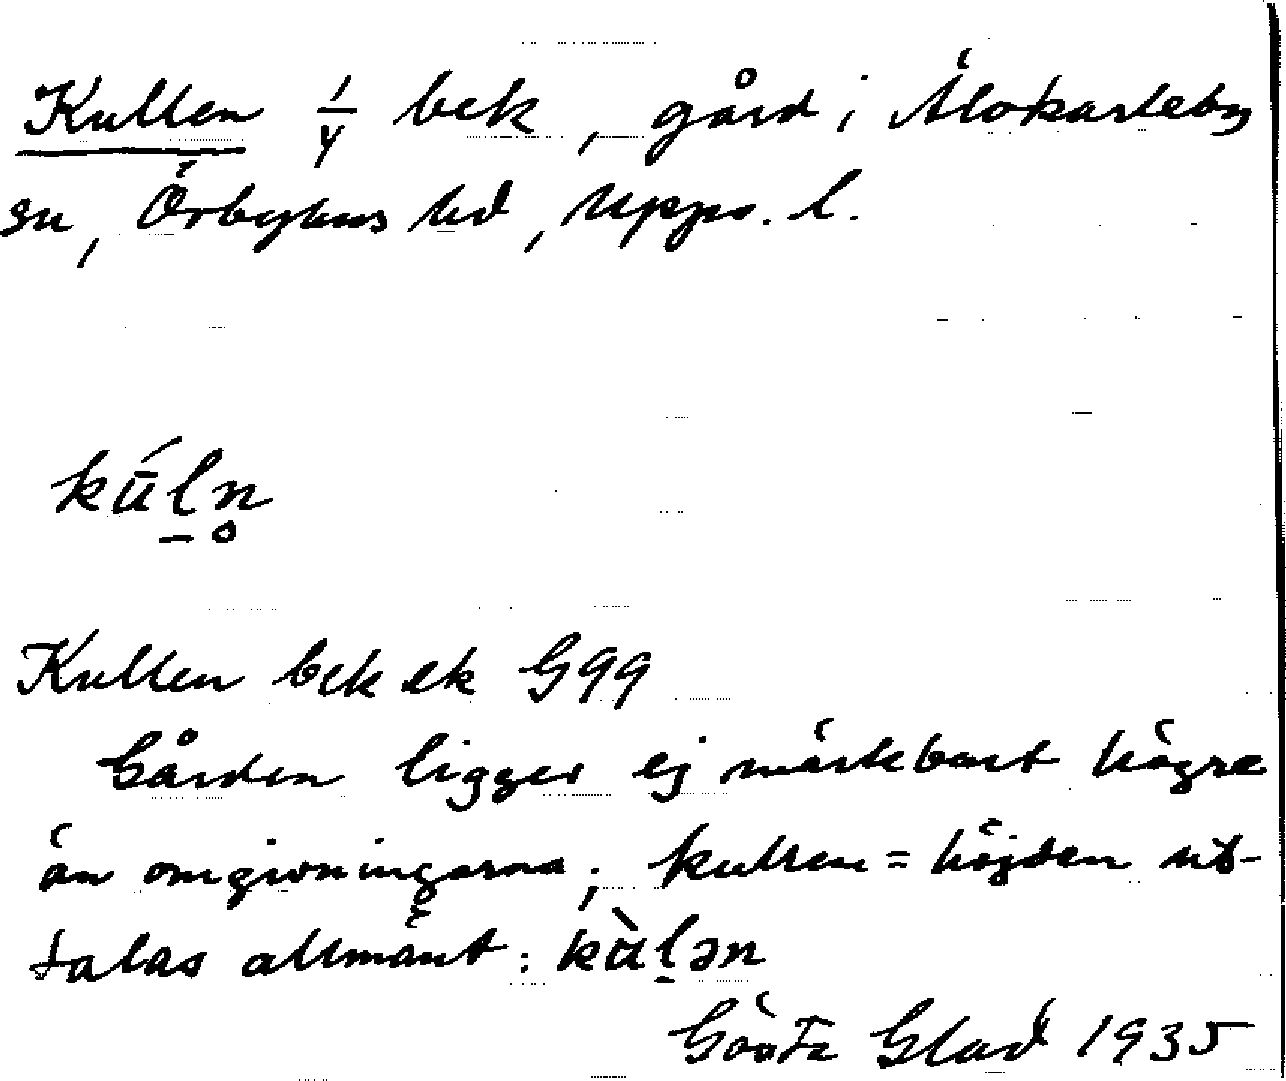 Kullen 1/4 bek, gård i Älvkarleby
sn, Örbyhus hd, Upps. l.
kū́l̠n̥
Kullen bek ek G99
Gården ligger ej märkbart högre
än omgivningarna; kullen = höjden ut-
talas allmänt: kùl̠ən
Gösta Glad 1935